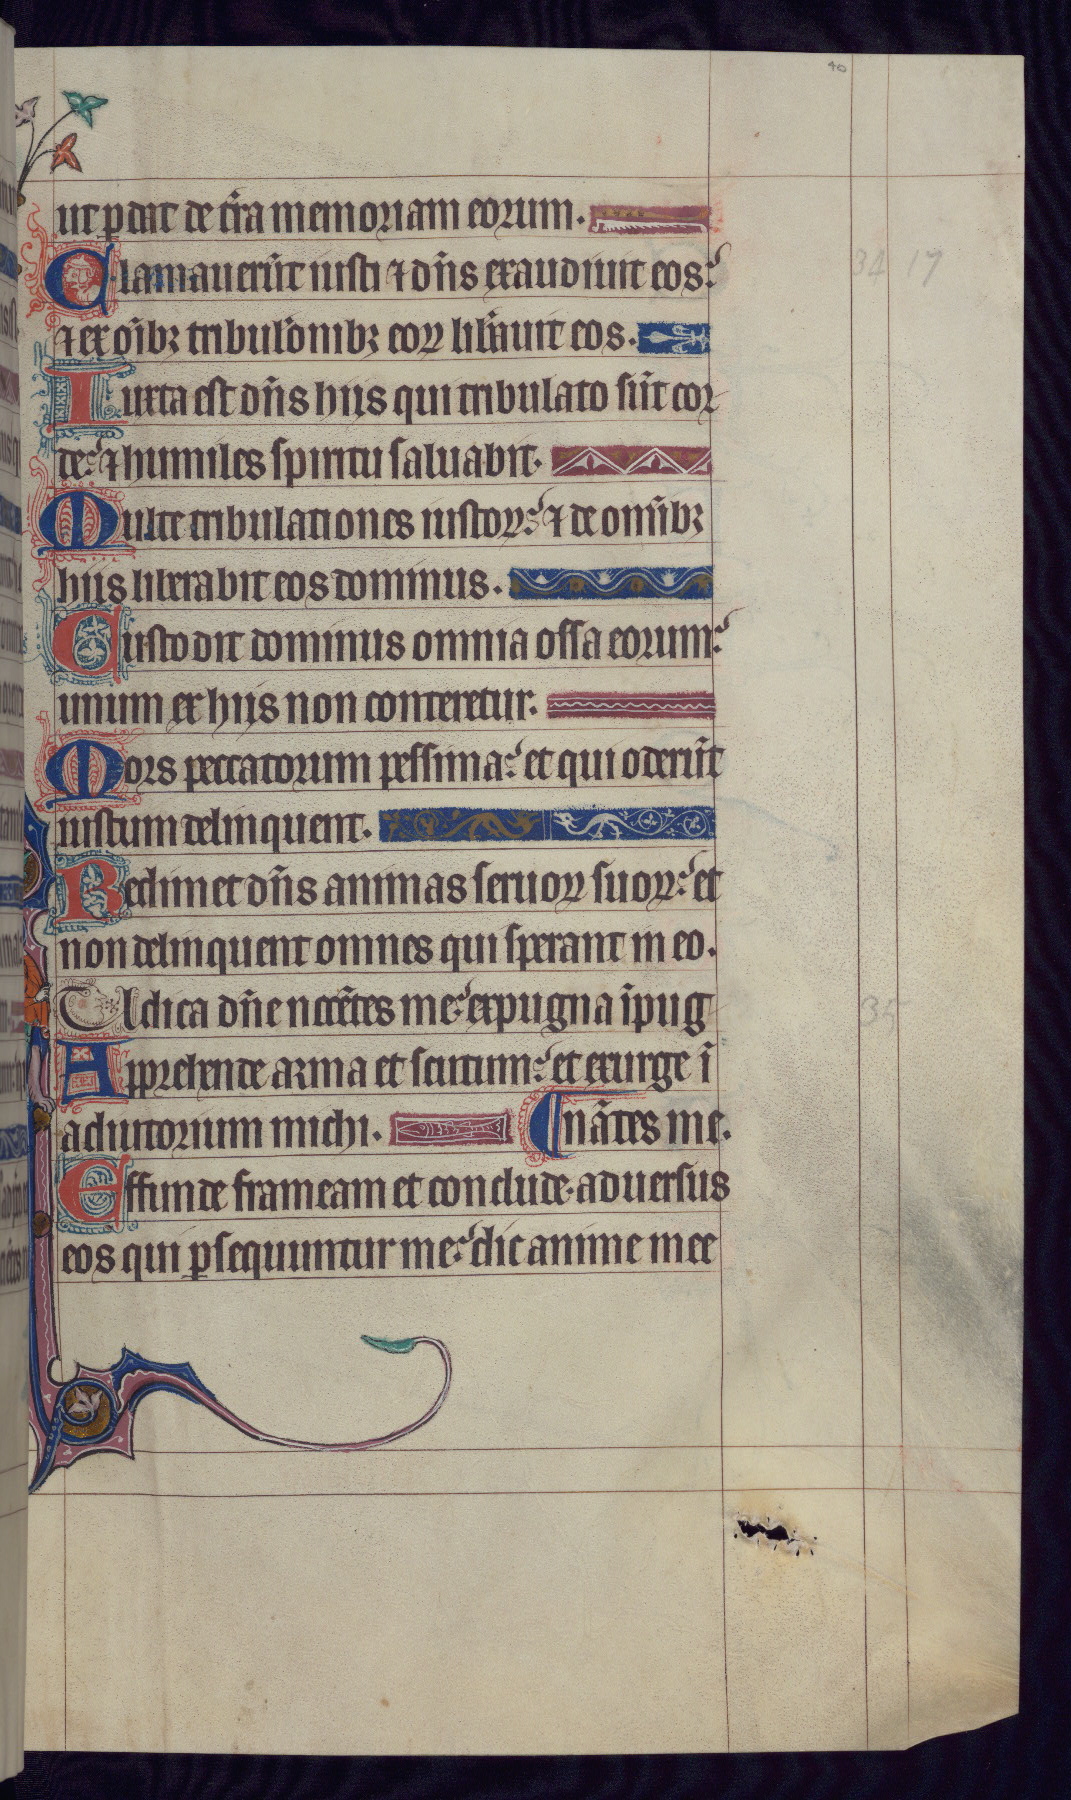 40
ut pdat de tr̄a memoriam eorum.
Clamauer̄ut iusti ⁊ dn̄s exaudiuit eos:
34 17
⁊ ex om̄ibꝫ tribul'onibꝫ eoꝝ lib̄auit eos.
Iuxta est dn̄s hijs qui tribulato sūt cor
de: ⁊ humiles spiritu saluabit.
Multe tribulationes iustoꝝ: ⁊ de omībꝫ
hijs liberabit eos dominus.
Custodit dominus omnia ossa eorum:
unum ex hijs non conteretur.
Mors peccatorum pessima: et qui oderūt
iustum delinquent.
Redimet dn̄s animas seruoꝝ suoꝝ: et
non delinquent omnes qui sperant in eo.
Iudica dn̄e nocētes me: expugna īpug
35
Apprehende arma et scutum: et exurge ī
adiutorium michi. nātes me.
Effunde frameam et conclude. aduersus
eos qui ꝑsequuntur me: dic anime mee